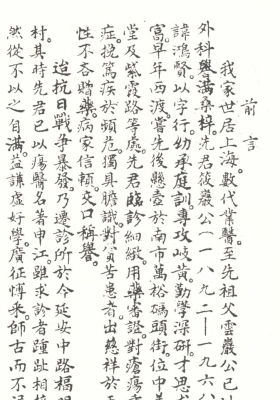 前言
我家世居上海。数代業醫。至先祖父雲巖公已以
外科譽满桑梓。先君筱巖公(一八九二——一九六八
諱鴻賢。以字行。幼承庭訓。專攻岐黄。勤學深研。才思
富。早年西渡嘗先後懸壺於南市萬裕碼頭街。位中
及紫霞路等處。先君臨診細緻。用藥審證。對瘡瘍
症。挽篤疾於頻危。獨具膽識。對貧苦患者。出慈祥於
性。不吝赠藥。病家信賴。交口稱譽。
迨抗日戰争暴發。乃遷診所於今延安中路楊
村。其時先君已以瘍醫名著申江。雖求診者踵趾相
然從不以之自满。益謙虚好學。廣征博采。師古而不